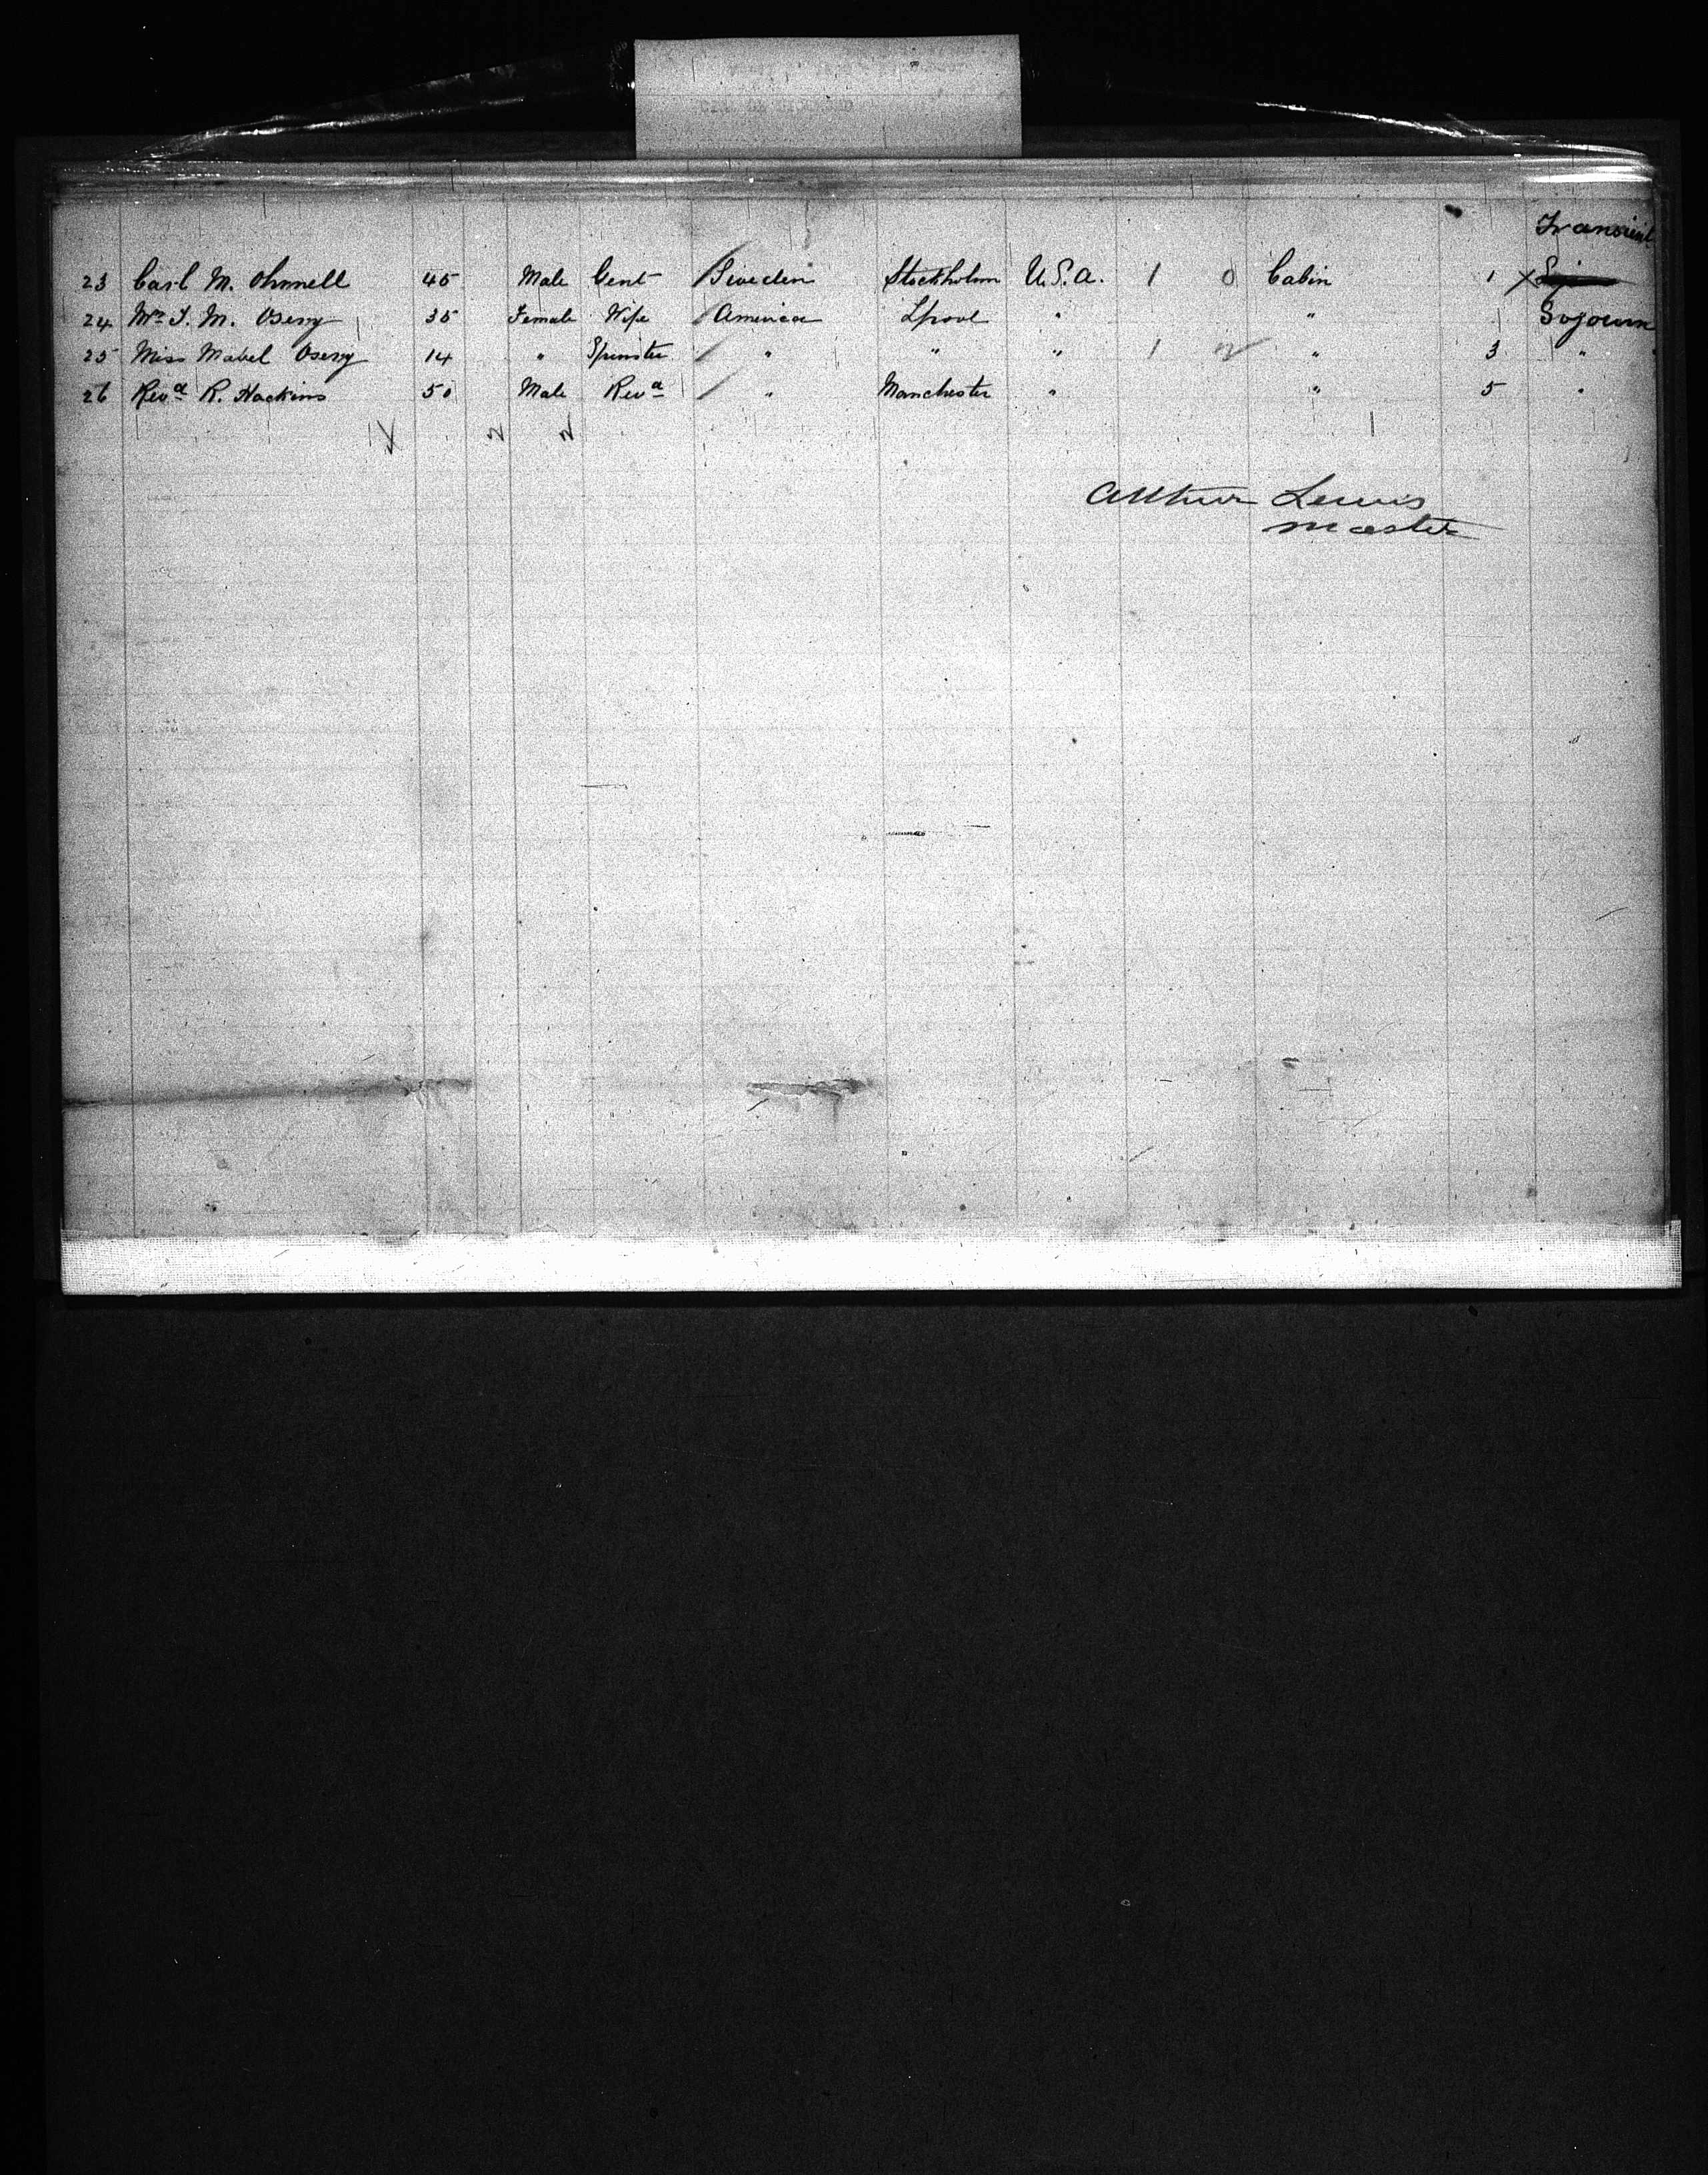 Transient
23 Carl M. Ohnnell 45 Male Gent Sweeden Stockholm U.S.A. 1 0 Cabin 1 X
24 Mrs J. M. Oserry 35 Female Wife America Lpool " " Sojourn
25 Miss Mabel Oserry 14 " Spinster " " " 1 " 3 "
26 Revd R. Hackins 50 Male Revd " Manchester " " 5 "
Arthur Lewis
Master